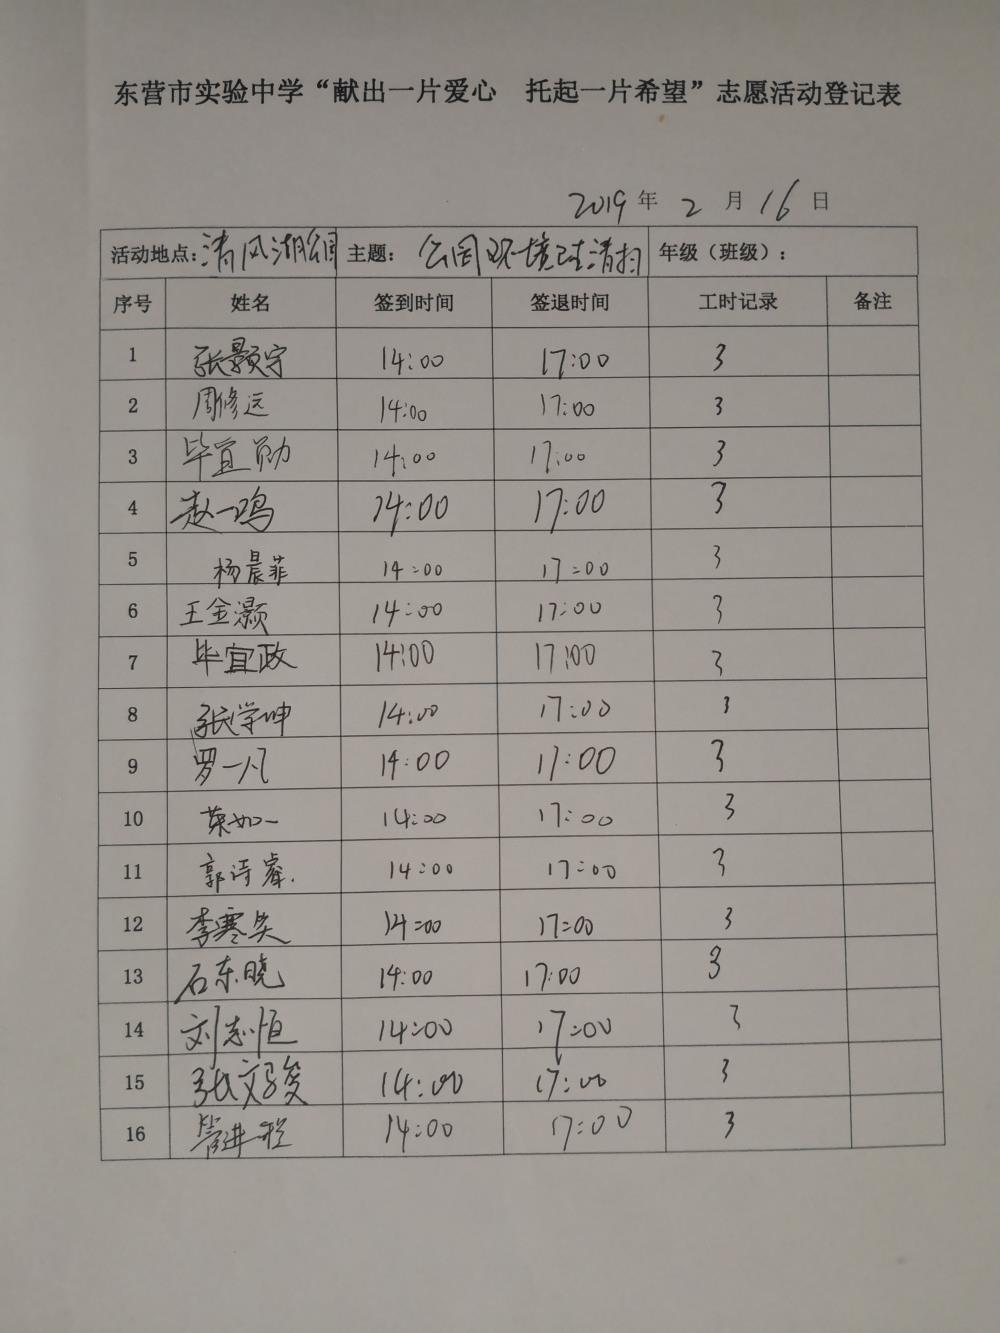 东营市实验中学“献出一片爱心 托起一片希望”志愿活动登记表
2019年 2月 16日
活动地点:清风湖公园 主题: 公园环境 清扫 年级（班级）:
序号 姓名 签到时间 签退时间 工时记录 备注
1 张景宇 14:00 17:00 3
2 周修远 14:00 17:00 3
3 毕宜勋 14:00 17:00 3
4 赵一鸣 14:00 17:00 3
5 杨晨菲 14:00 17:00 3
6 王金灏 14:00 17:00 3
7 毕宜政 14:00 17:00 3
8 张学坤 14:00 17:00 3
9 罗一凡 14:00 17:00 3
10 14:00 17:00 3
11 郭诗睿. 14:00 17:00 3
12 李寒笑 14:00 17:00 3
13 石东晓 14:00 17:00 3
14 刘志恒 14:00 17:00 3
15 张文骏 14:00 17:00 3
16 14:00 17:00 3